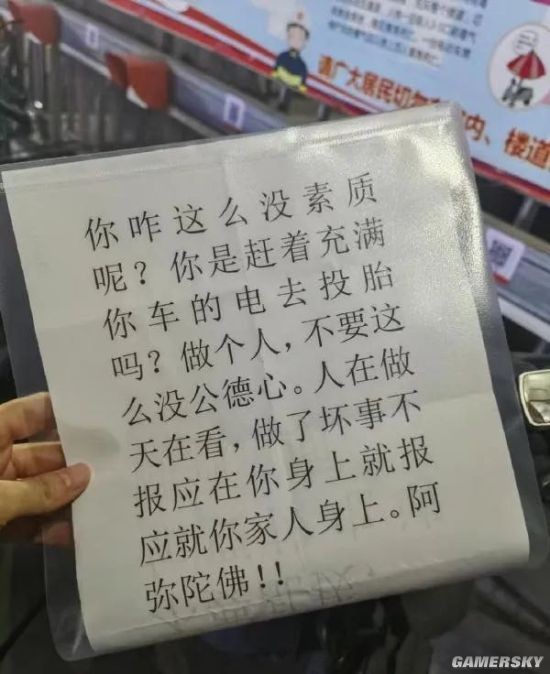 请广大居民切勿
内、楼道
你咋这么没素质
呢？你是赶着充满
你车的电去投胎
吗？做个人，不要这
么没公德心。人在做
天在看，做了坏事不
报应在你身上就报
应就你家人身上。阿
弥陀佛!!
GAMERSKY